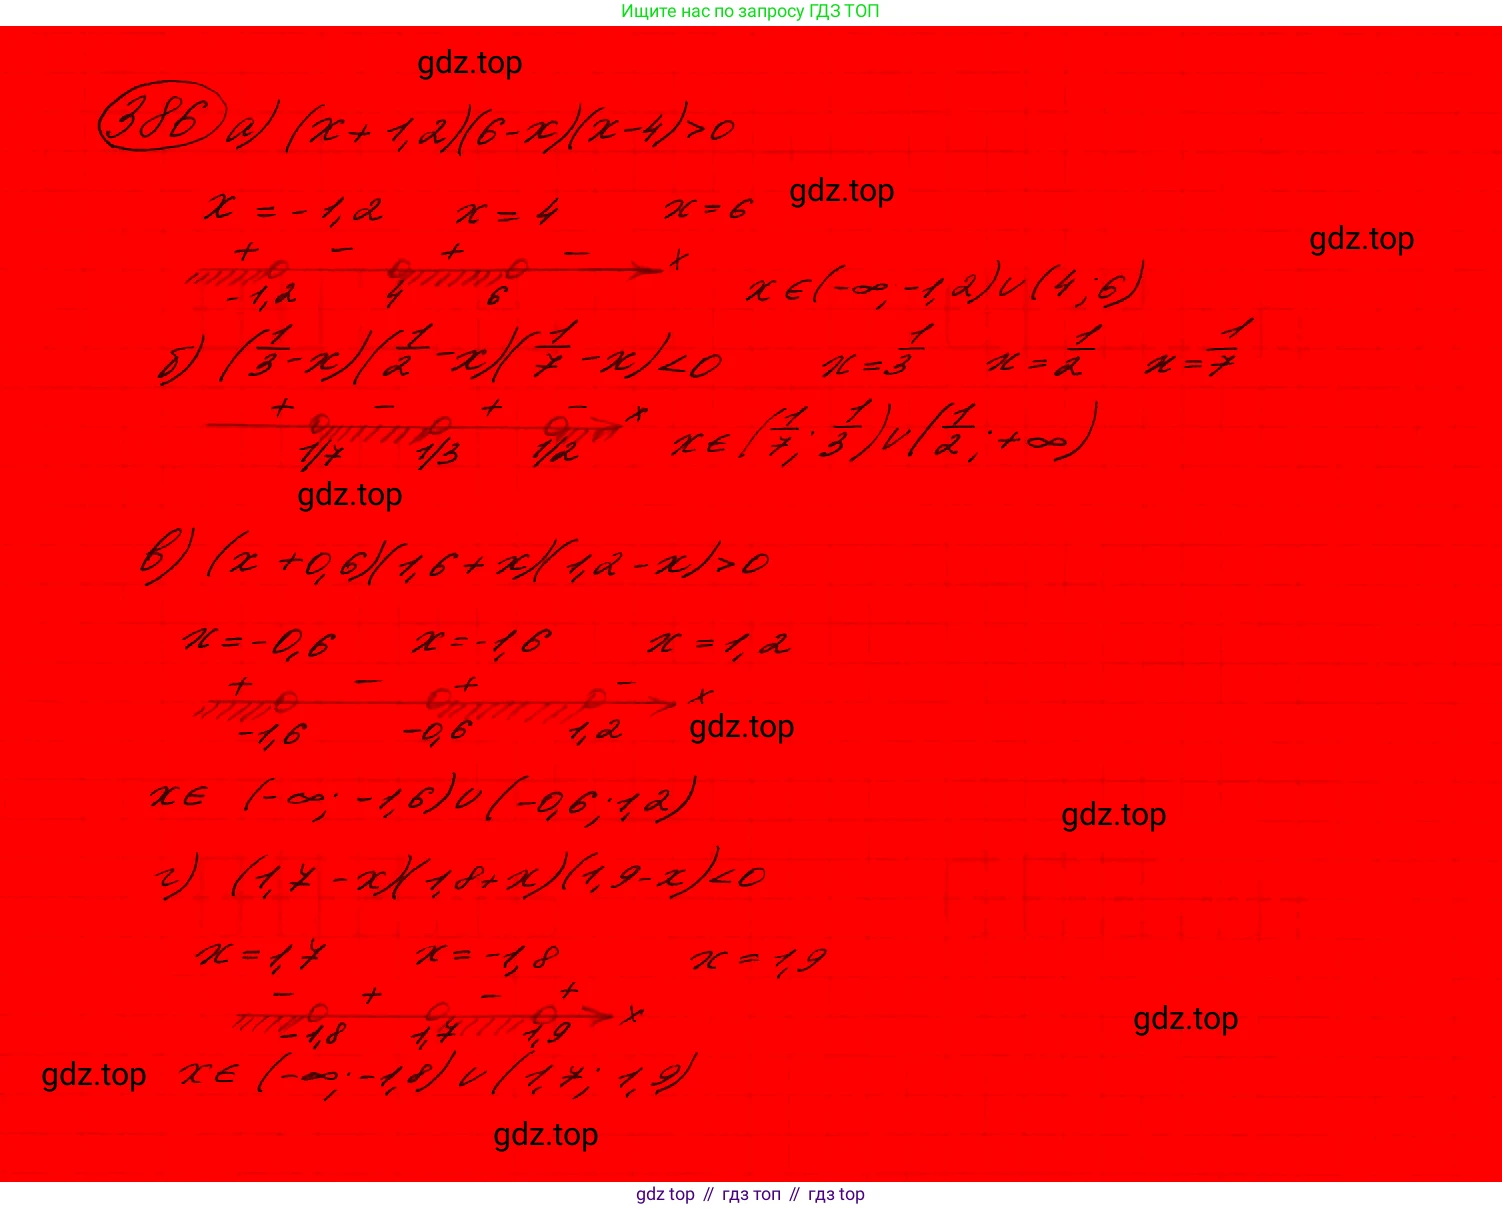 Ищите нас по запросу ГДЗ ТОП
gdz.top
386 а) (x + 1,2)(6-x)(x-4)>0
x = -1,2 x = 4 x = 6
gdz.top
gdz.top
+ - + - x
-1,2 4 6
x ∈ (-∞; -1,2) ∪ (4; 6)
б) (1/3 - x)(1/2 - x)(1/7 - x) < 0 x = 1/3 x = 1/2 x = 1/7
+ - + - x
1/7 1/3 1/2
x ∈ (1/7; 1/3) ∪ (1/2; +∞)
gdz.top
в) (x + 0,6)(1,6 + x)(1,2 - x) > 0
x = -0,6 x = -1,6 x = 1,2
+ - + - x
-1,6 -0,6 1,2
gdz.top
x ∈ (-∞; -1,6) ∪ (-0,6; 1,2)
gdz.top
г) (1,7 - x)(1,8 + x)(1,9 - x) < 0
x = 1,7 x = -1,8 x = 1,9
- + - + x
-1,8 1,7 1,9
gdz.top
gdz.top
x ∈ (-∞; -1,8) ∪ (1,7; 1,9)
gdz.top
gdz top // гдз топ // гдз top